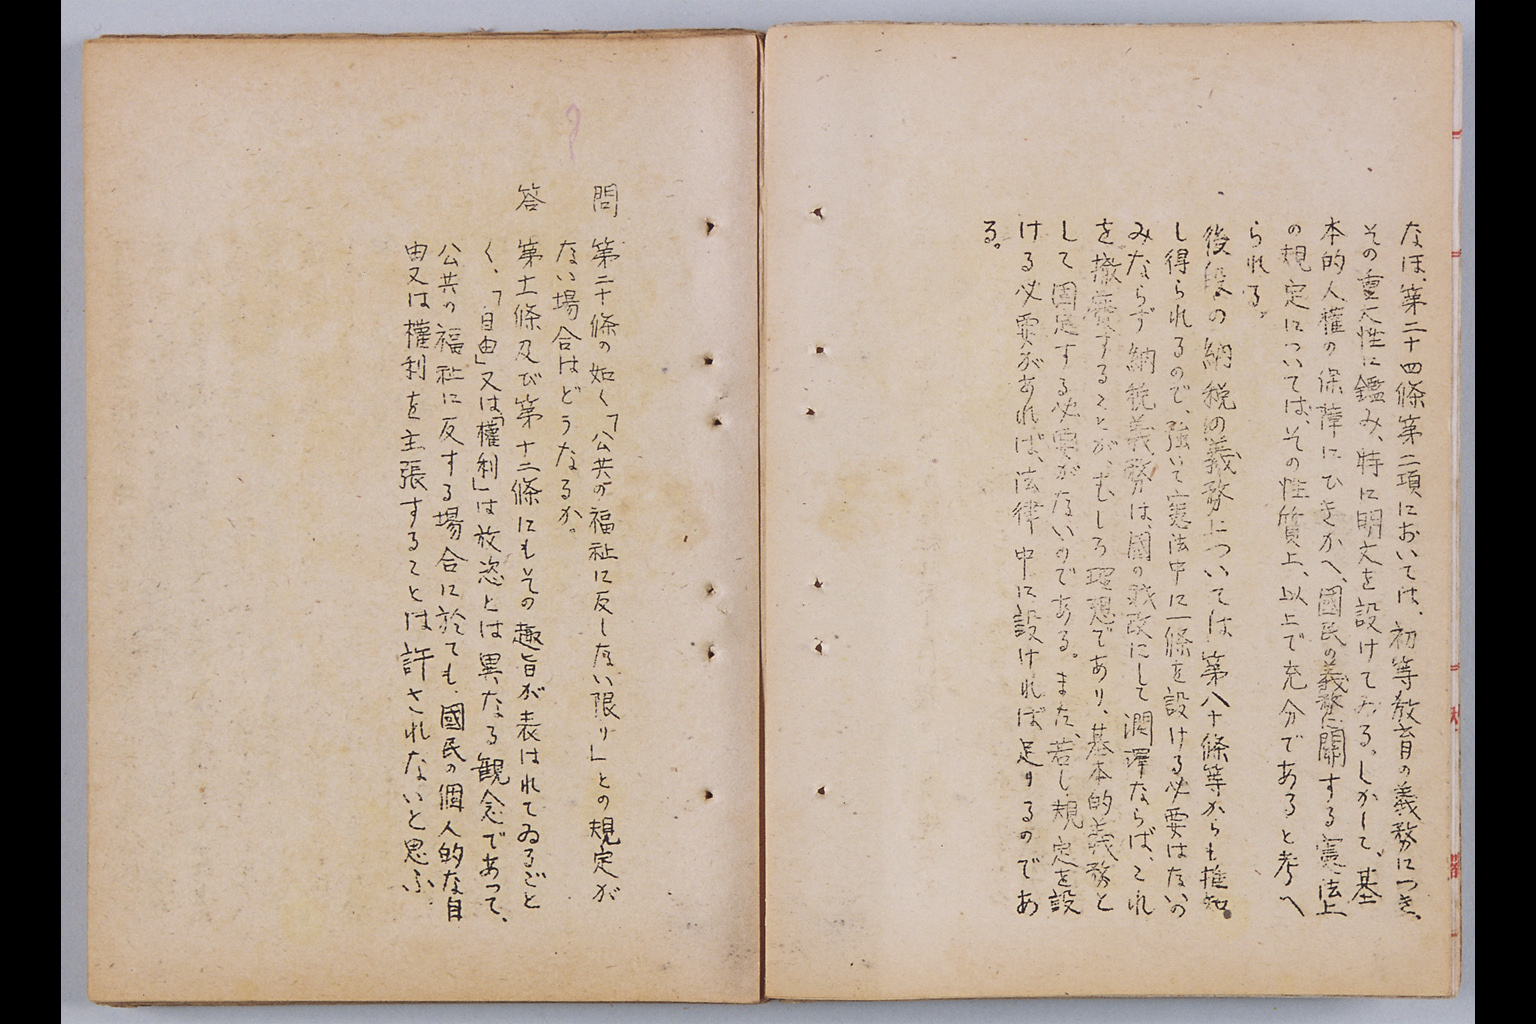 なほ、第二十四條第二項においては、初等教育の義務につき、
その重大性に鑑み、特に明文を設けてゐる。しかして、基
本的人權の保障にひきかへ、國民の義務に關する憲法上
の規定については、その性質上、以上で充分であると考へ
られる。
後段の納税の義務については第八十條等からも推知
し得られるので、強いて憲法中に一條を設ける必要はないの
みならず納税義務は、國の財政にして潤澤ならば、これ
を撤廢することが、むしろ理想であり、基本的義務と
して固定する必要がないのである。また、若し規定を設
ける必要があれば、法律中に設ければ足りるのであ
る。
問 第二十條の如く「公共の福祉に反しない限り」との規定が
ない場合はどうなるか。
答 第十一條及び第十二條にもその趣旨が表はれてゐるごと
く、「自由」又は「權利」は放恣とは異なる観念であつて、
公共の福祉に反する場合に於ても、國民の個人的な自
由又は權利を主張することは許されないと思ふ。